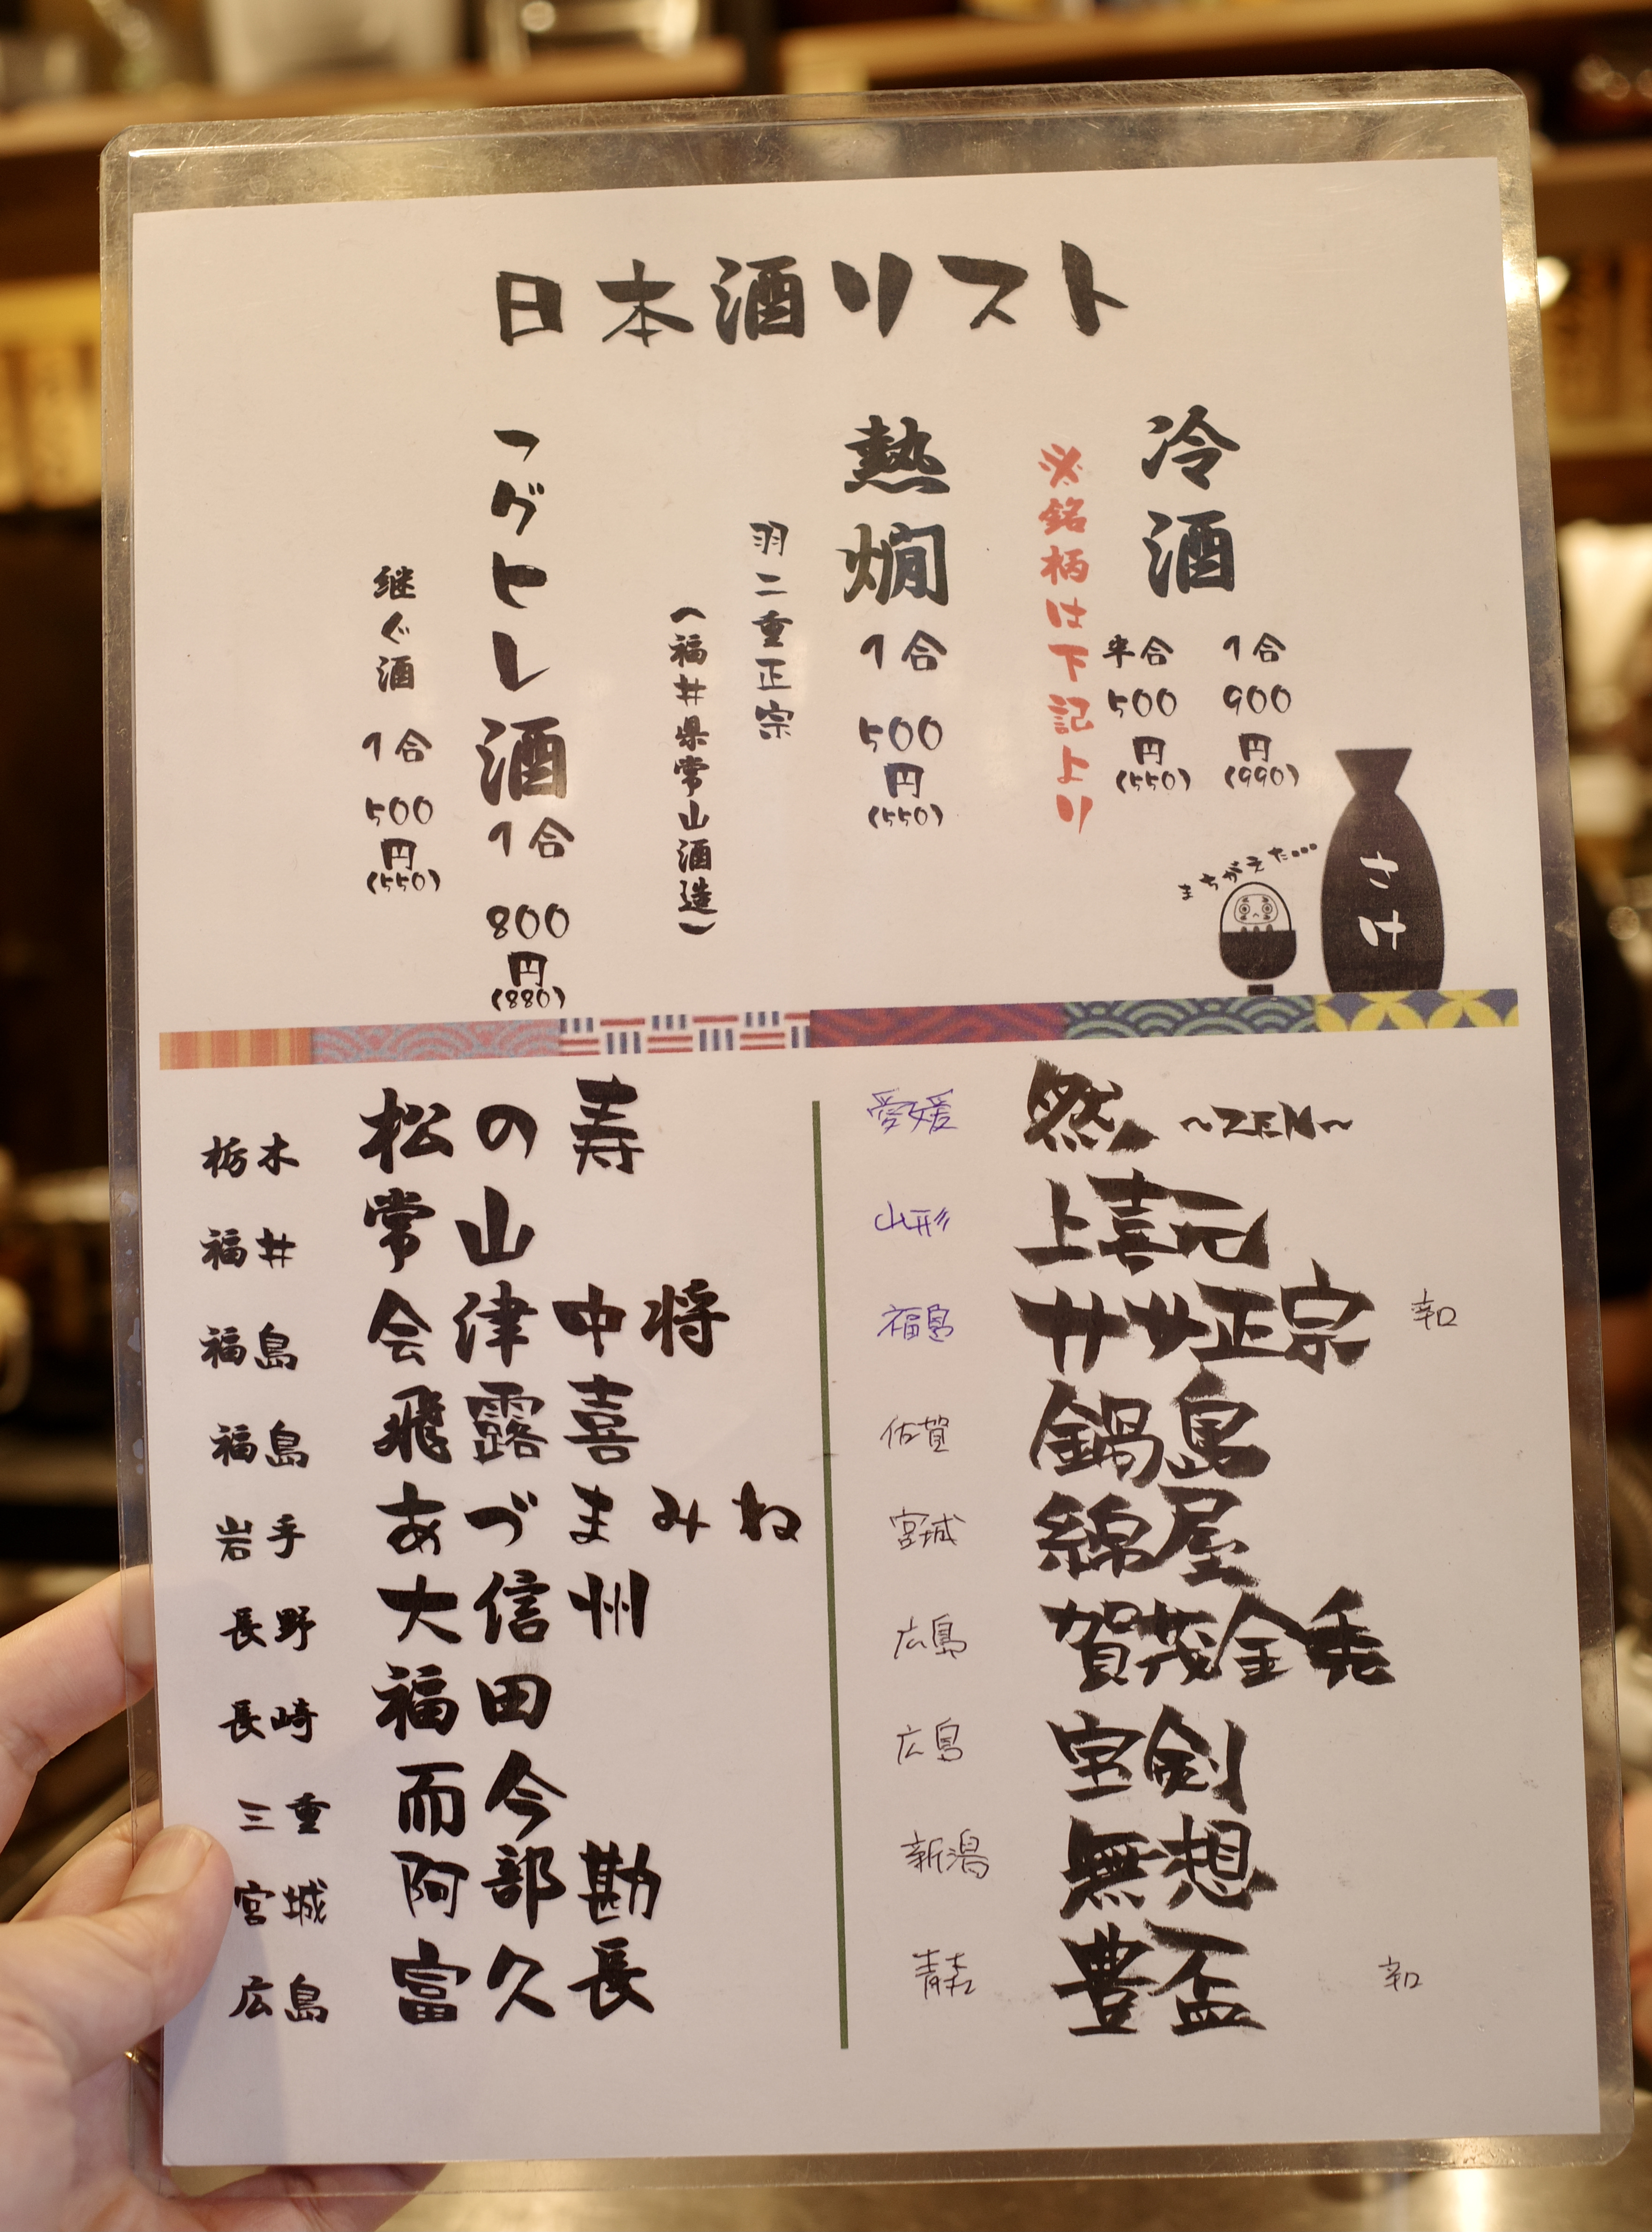 日本酒リスト
冷酒
1合
900
円
(990)
半合
500
円
(550)
※銘柄は下記より
熱燗
1合
500
円
(550)
羽二重正宗
(福井県常山酒造)
フグヒレ酒
1合
800
円
(880)
継ぐ酒
1合
500
円
(550)
まちがえた…
さけ
栃木 松の寿
福井 常山
福島 会津中将
福島 飛露喜
岩手 あづまみね
長野 大信州
長崎 福田
三重 而今
宮城 阿部勘
広島 富久長
愛媛 然 ~ZEN~
山形 上喜元
福島 ササ正宗 辛口
佐賀 鍋島
宮城 綿屋
広島 賀茂金秀
広島 宝剣
新潟 無想
青森 豊盃 辛口